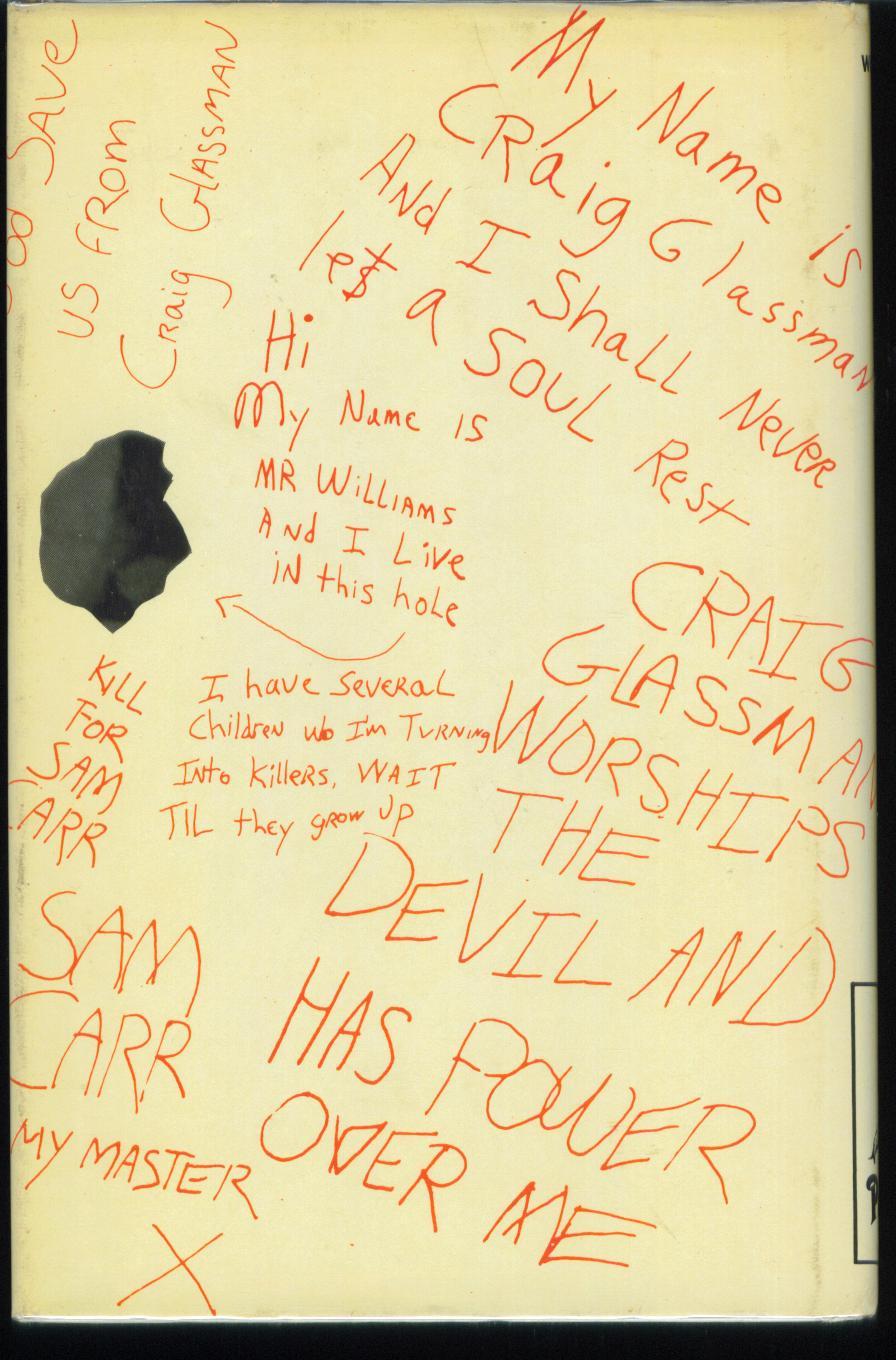 God SAVE
US FROM
Craig GlASSMAN
My Name is
CRaig Glassman
And I Shall Never
let a SOUL Rest
Hi
My Name is
MR WilliAMS
And I Live
iN this hole
I have SeveRal
Children wo I'm TURNiNg
INto killers. WAIT
TIL they grow UP
KiLL
FOR
SAM
CARR
SAM
CARR
MY MASTER
X
CRAIG
GLASSMAN
WORSHIPS
THE
DEVIL AND
HAS POWER
OVER ME